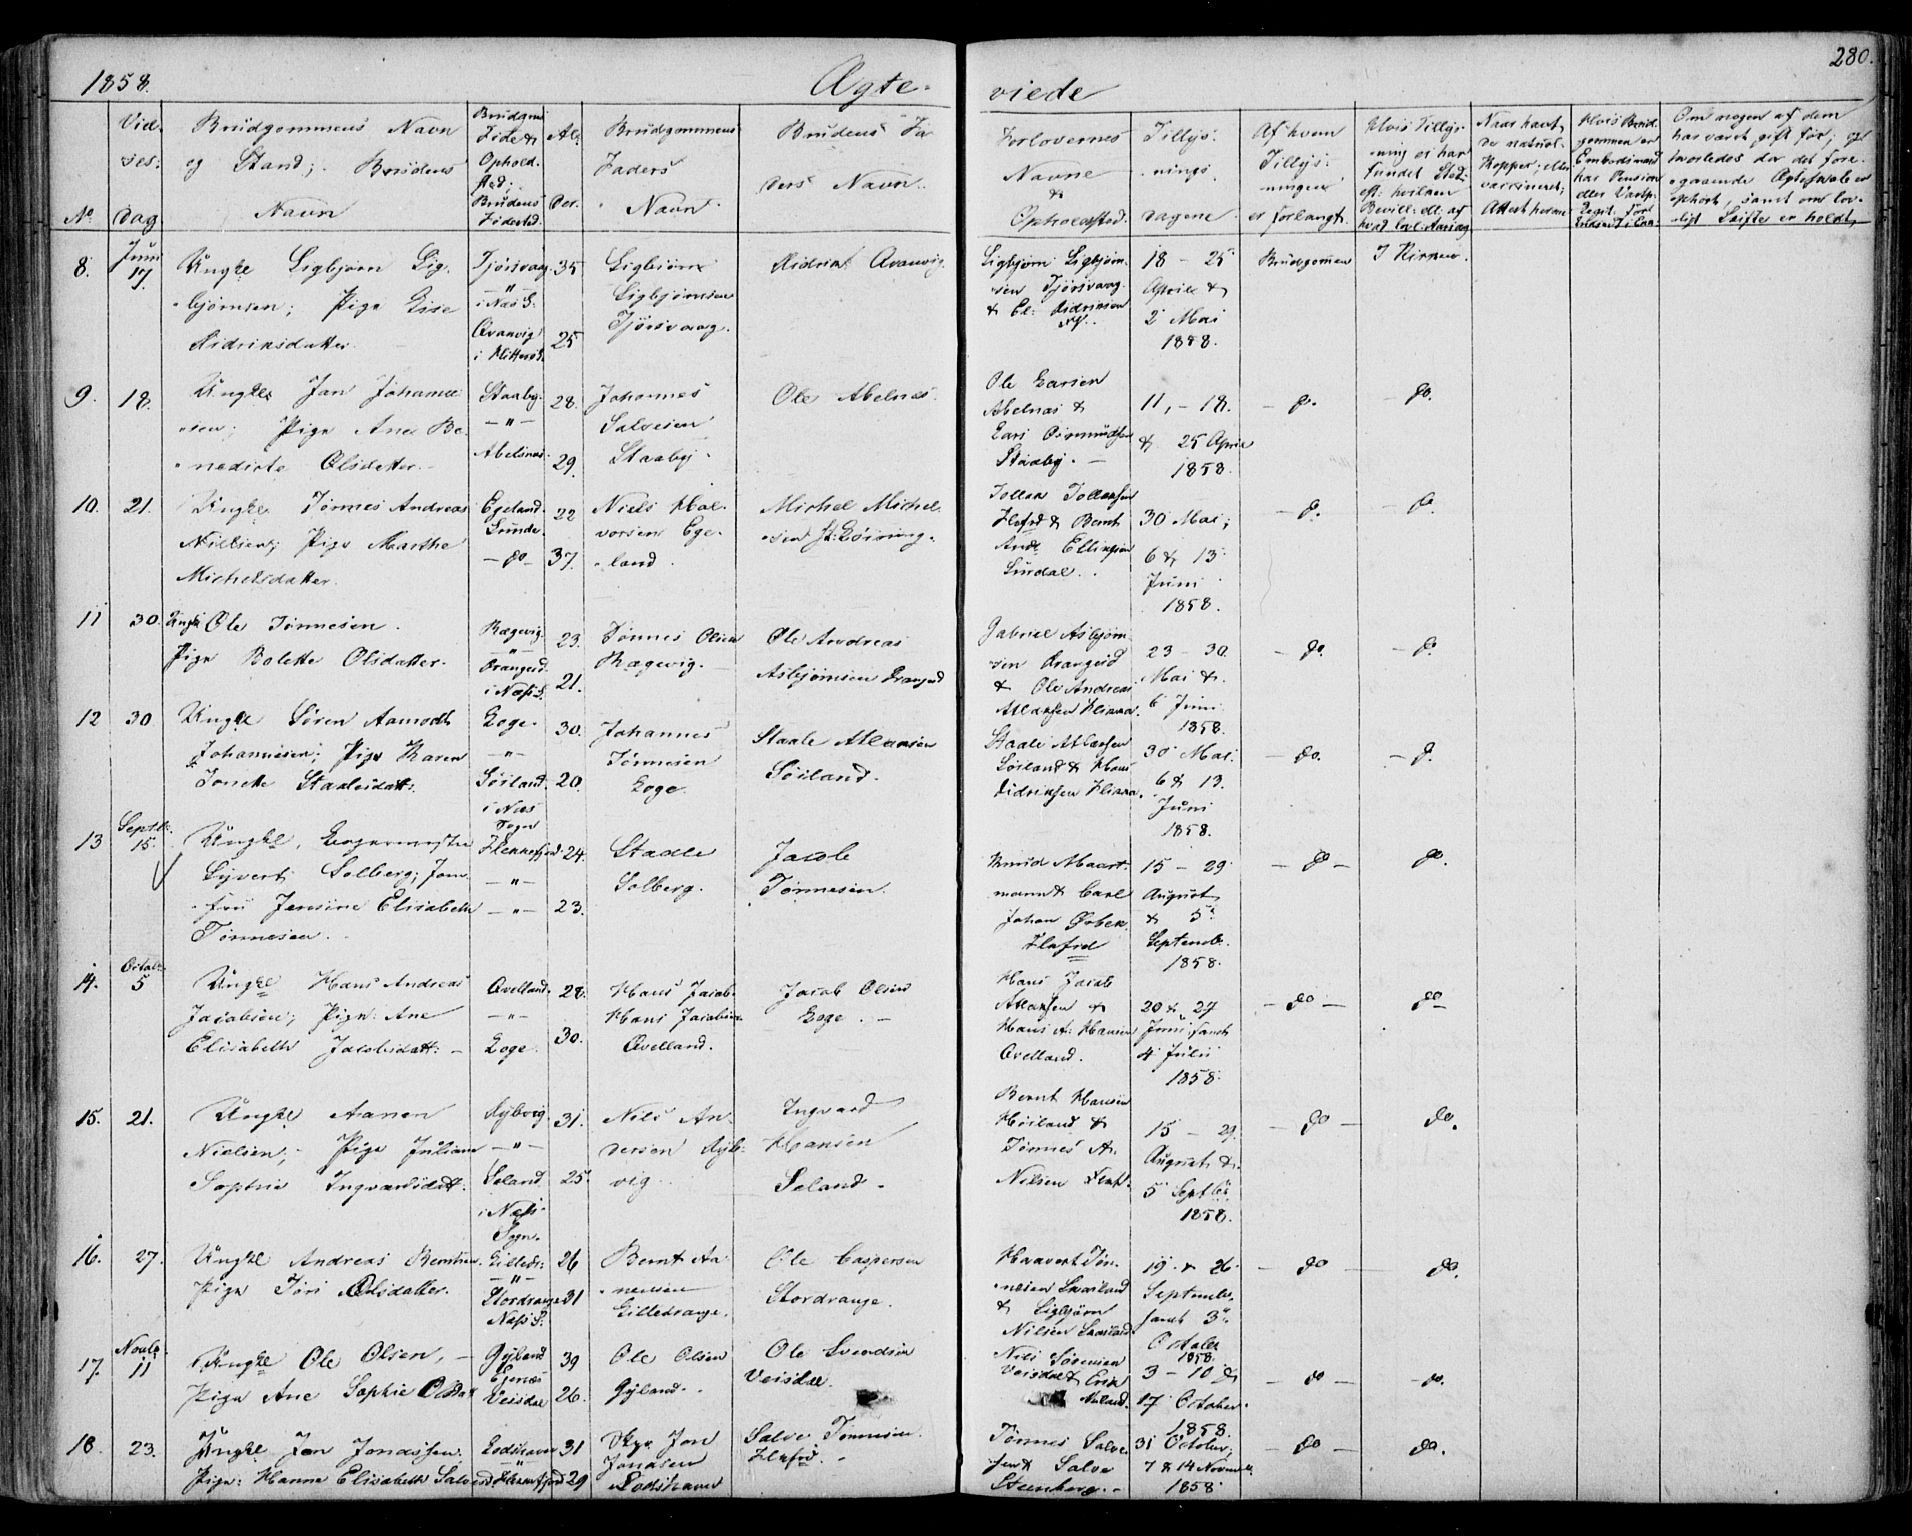 1858. Ægte- viede 280.
No
Vid-
ses:
dag
Brudgommens Navn
og Stand; Brudens
Navn
Brudgms
Fødested
Ophold-
sted;
Brudens
Fødested.
Al-
der.
Brudgommens
Faders
Navn
Brudens Fa-
ders Navn.
Forlovernes
Navne
&
Opholdssted.
Tillys-
nings
dagene
Af hvem
Tillys-
ningen
er forlangt.
Hvis Tillys-
ning er har
fundet Sted
Naar havt
de naturl.
Kopper; eller
vaccineret;
Hvis Brud-
gommen er
Embedsmand
har Pension
Om nogen af dem
har været gift før; og
hvorledes da det fore-
gaaende Ægteskab er
ophørt, samt om lov-
ligt Skifte er holdt.
8. Juni 17. Ungkl Sigbjørn Sig-
bjørnsen; Pige Lise
Didriksdatter
Tjørsvaag
- " -
i Næs S.
Aavanvig
i Hitterø S.
35
25
Sigbjørn
Sigbjørnsen
Tjørsvaag.
Didrik Aavanvig.
Sigbjørn Sigbjørn-
sen Tjørsvaag
& El: Didriksen
18 - 25
Aprill &
2 Mai
1858.
Brudgomen
I Kirken.
9. 18. Ungkl Jan Johanne-
sen; Pige Ane Be-
nedicte Olsdatter.
Staaby.
- " -
Abelsnæs.
28.
29.
Johannes
Salvesen
Staaby.
Ole Abelnæs.
Ole Larsen
Abelnæs &
Lars Osmundsen
Staaby. -
11, - 18.
& 25 April
1858.
- do. - do.
10. 21. Ungkl. Tønnes Andreas
Nielsen; Pige Marthe
Michelsdatter.
Egeland
Lunde.
- do -
22
37.
Niels Hal-
vorsen Ege-
land.
Michel Michel-
sen
Tollak Tollaksen
Flkfrd & Bernt
Andr. Ellingsen
Sirdal.
30 Mai;
6 & 13
Juni
1858.
- do. - do.
11 30. Ungkl Ole Tønnesen.
Pige Bolette Olsdatter.
Rægevig.
- " -
Drangeid.
i Næs S.
23.
21.
Tønnes Olsen
Rægevig.
Ole Andreas
Asbjørnsen Drangeid
Gabriel Asbjørn-
sen Drangeid
& Ole Andreas
Atlaksen
23 - 30.
Mai &
6 Juni
1858.
- do. - do.
12 30 Ungkl Søren Aamodt
Johannesen; Pige Karen
Tonette Staalesdatt.
Loge.
- " -
Søiland.
i Næs
Sogn
30.
20.
Johannes
Tønnesen
Loge.
Staale Atlaksen
Søiland.
Staale Atlaksen
Søiland & Hans
Didriksen
30 Mai.
6 & 13.
Juni
1858.
- do. - do.
13 Septbr. 15. Ungkl,
Sivert Solberg; Jom-
fru Jensine Elisabeth
Tønnesen.
Flekkefjord.
- " -
- " -
24.
23.
Staale
Solberg.
Jacob
Tønnesen.
Knud Maart-
mann & Carl
Johan
Flkfrd
15 - 29
August
& 5te
Septemb.
1858.
- do - do.
14. Octob. 5 Ungkl Hans Andreas
Jacobsen; Pige: Ane
Elisabeth Jacobsdatt: -
Øvelland.
- " -
Loge
28.
30.
Hans Jacob-
Hans Jacobsen
Øvelland.
Jacob Olsen
Loge. -
Hans Jacob
Atlaksen &
Hans A: Hansen
Øvelland.
20 & 27
Juni samt
4 Juli
1858.
- do - do
15. 21. Ungkl Aanen
Nielsen; Pige Juliane
Sophie Ingvardsdatt.
Rybvig.
- " -
Seland.
i Næs
Sogn.
31.
25.
Nils An-
dersen Ryb-
vig.
Ingvard
Hansen
Seland.
Bernt Hansen
Høiland &
Tønnes A.
Nilsen Flkf.
15 - 29.
August &
5 Septbr
1858.
- do - do.
16. 27. Ungkl Andreas Berntsen.
Pige Tøri Olsdatter.
Gilledr:
- " -
Stordrange
Næs S.
26
31
Bernt Aa-
nensen
Gilledrange.
Ole Caspersen
Stordrange.
Haavert Tøn-
nesen
& Sigbjørn
Nilsen
19 & 26
September
samt 3de
October
1858.
- do - do.
17. Novbr. 11 Ungkl Ole Olsen, -
Pige Ane Sophie Olsdat
Gyland
Veisdal
39
26.
Ole Olsen
Gyland.
Ole Svendsen
Veisdal.
Nils Sørensen
Veisdal & Erik
3 - 10 &
17 October
1858.
- do - do.
18. 23. Ungkl Jon Jonassen.
Pige: Hanne Elisabeth Salvesd.
Lodshavn
- " -
Flekkefjord
31
29
Jon
Jonasen
Lodshavn
Salve Tønnesen
Flkfrd. -
Tønnes Salve-
sen & Salve
Steenberg. -
31 October;
7 & 14 Novemb.
1858.
- do - do.